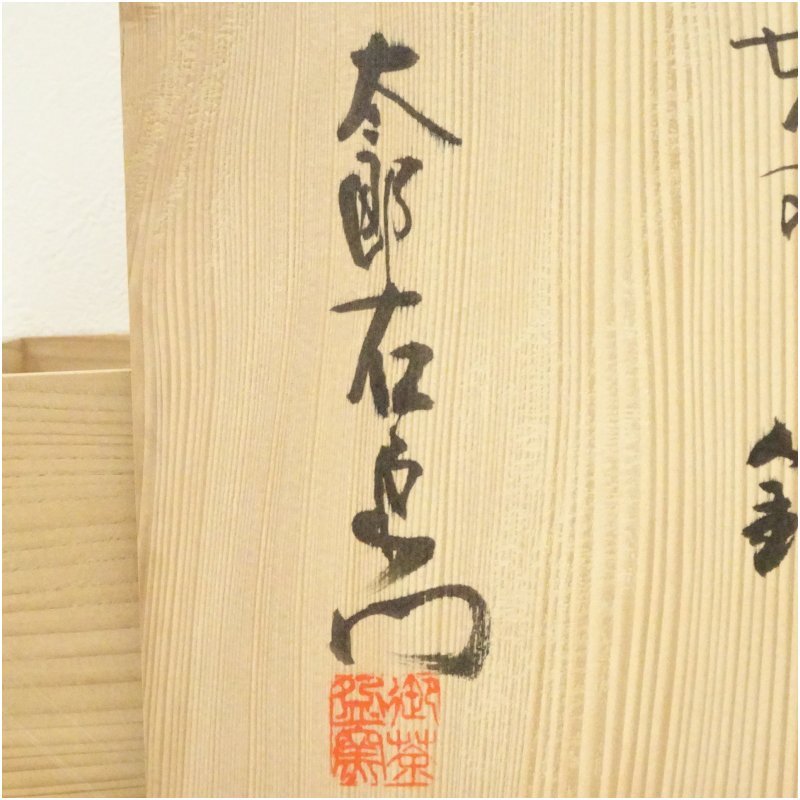 太郎右衛門
御茶
盌窯